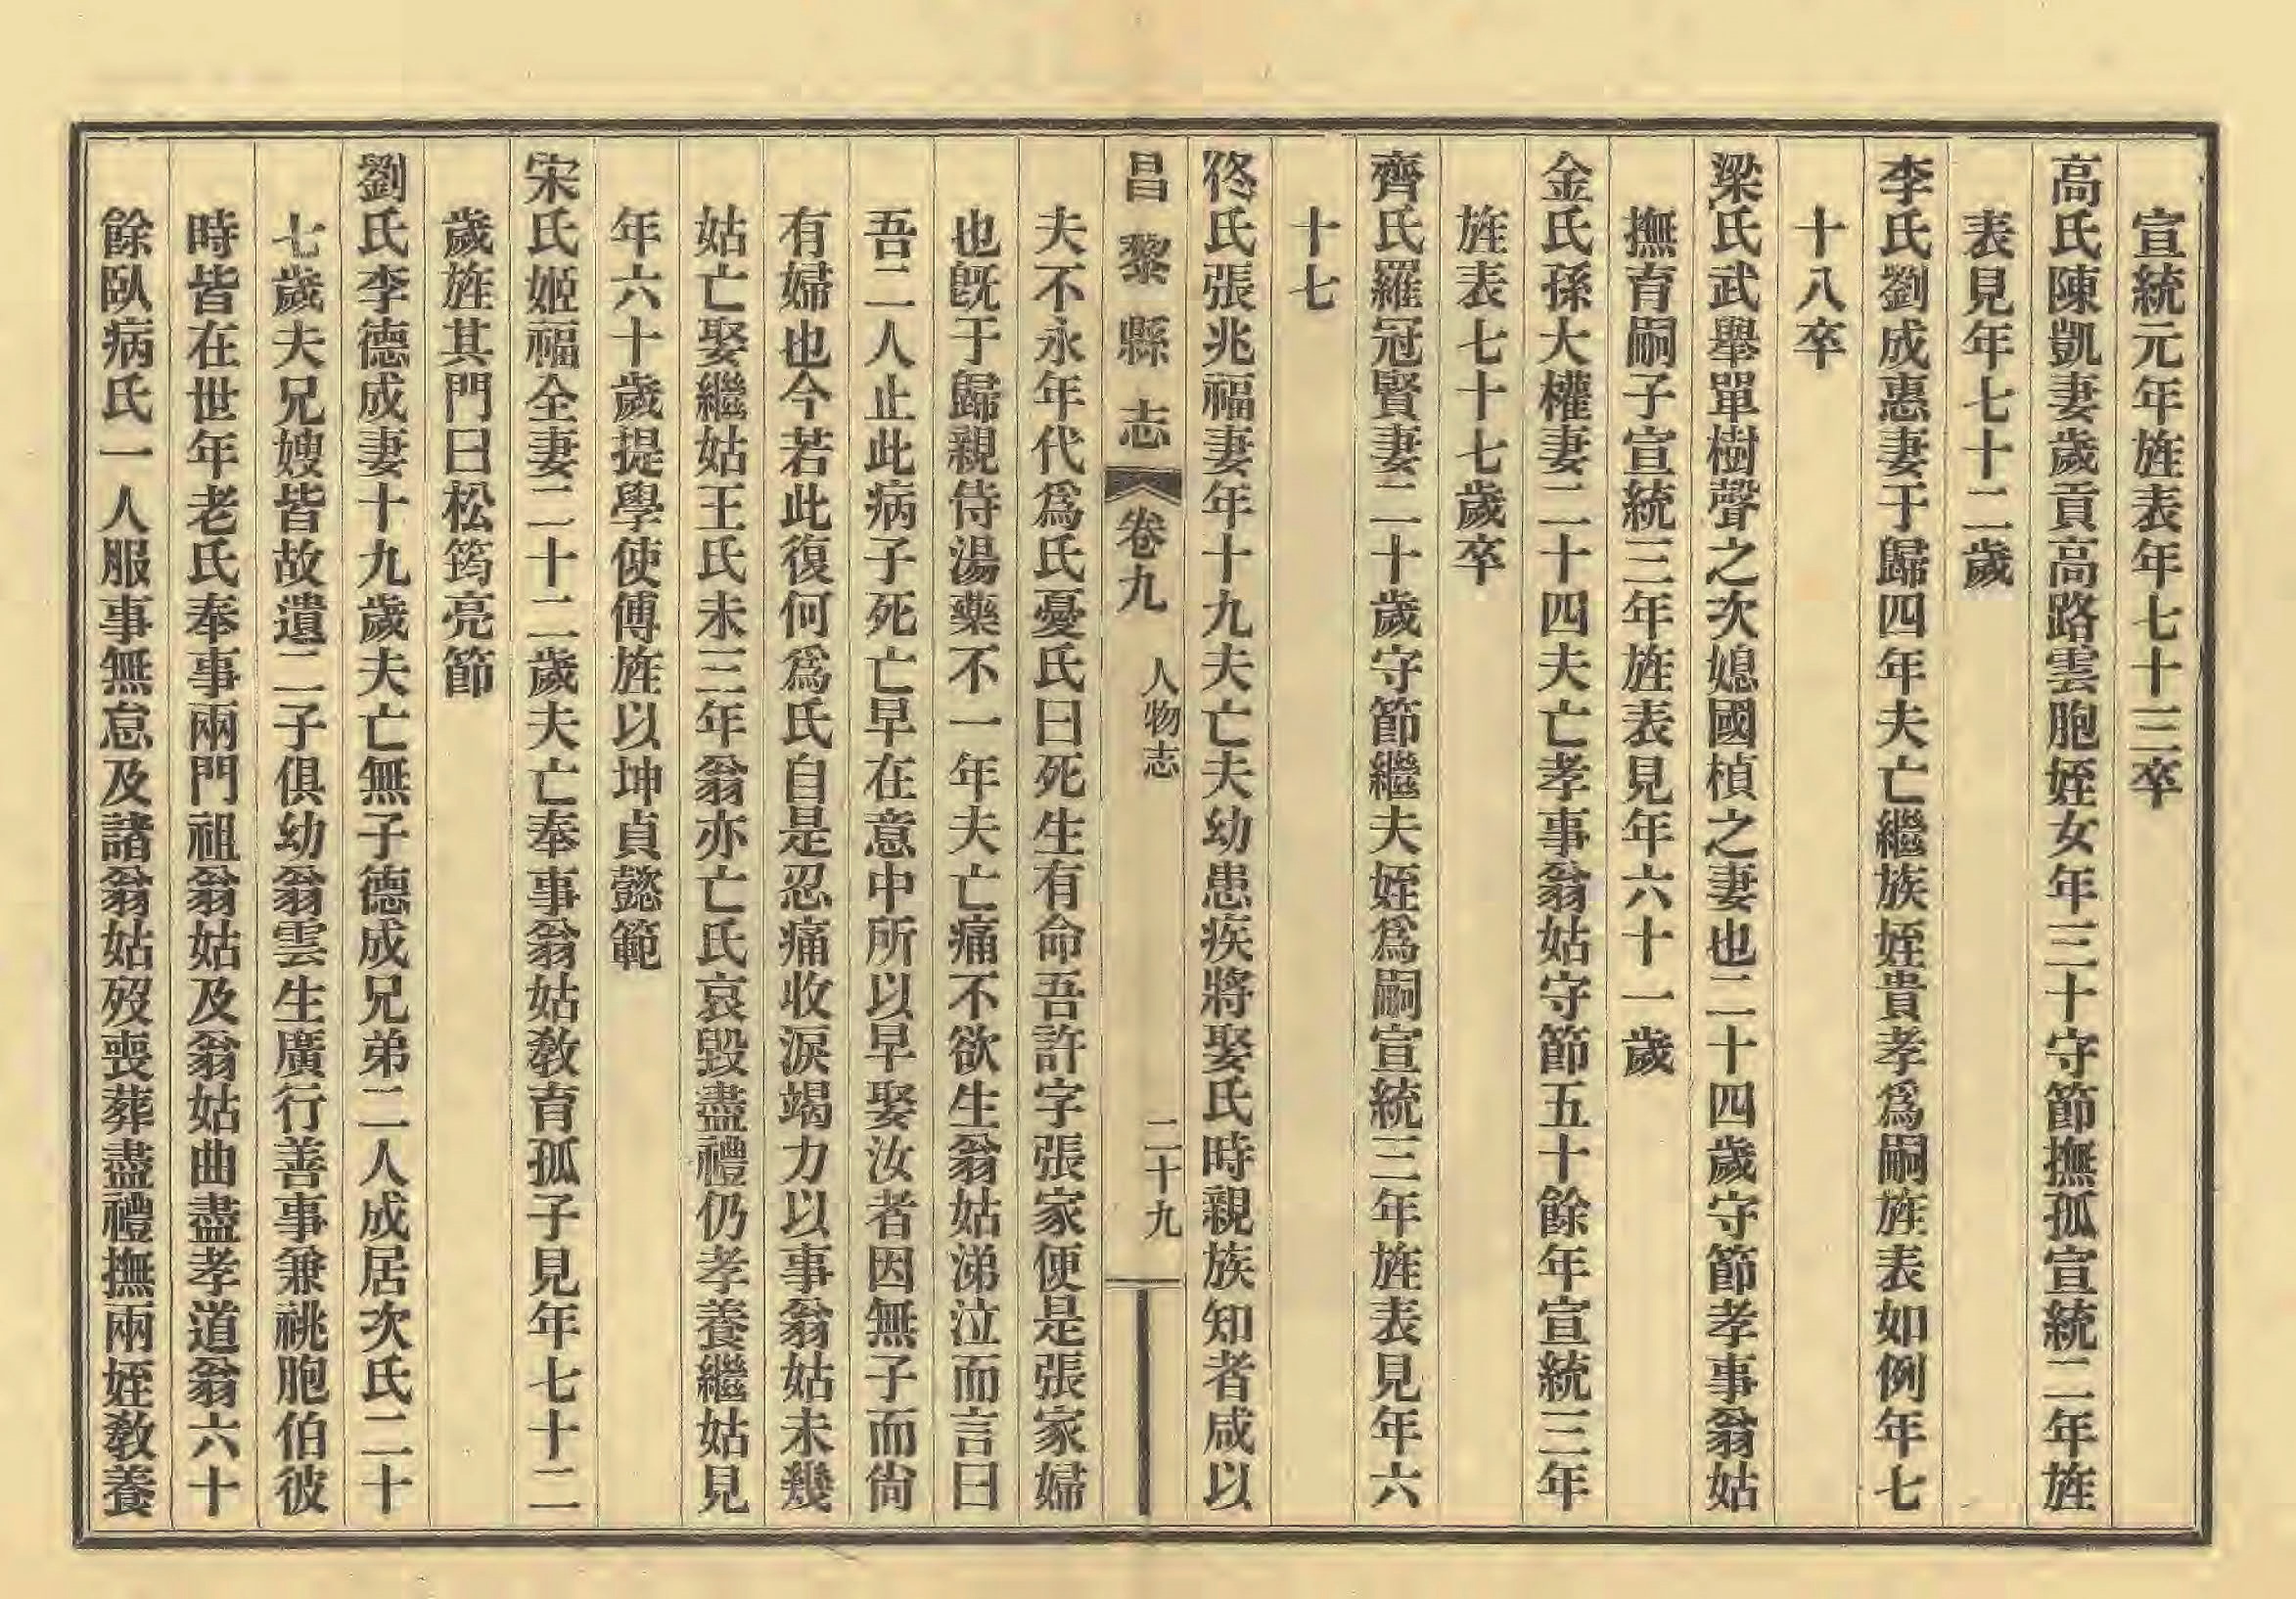 宣統元年旌表年七十三卒
高氏陳凱妻歲貢高路雲胞姪女年三十守節撫孤宣統二年旌
表見年七十二歲
李氏劉成惠妻于歸四年夫亡繼族姪貴孝爲嗣旌表如例年七
十八卒
梁氏武舉單樹聲之次媳國楨之妻也二十四歲守節孝事翁姑
撫育嗣子宣統三年旌表見年六十一歲
金氏孫大權妻二十四夫亡孝事翁姑守節五十餘年宣統三年
旌表七十七歲卒
齊氏羅冠賢妻二十歲守節繼夫姪爲嗣宣統三年旌表見年六
十七
佟氏張兆福妻年十九夫亡夫幼患疾將娶氏時親族知者咸以
昌黎縣志 卷九 人物志 二十九
夫不永年代爲氏憂氏曰死生有命吾許字張家便是張家婦
也旣于歸親侍湯藥不一年夫亡痛不欲生翁姑涕泣而言曰
吾二人止此病子死亡早在意中所以早娶汝者因無子而尙
有婦也今若此復何爲氏自是忍痛收淚竭力以事翁姑未幾
姑亡娶繼姑王氏未三年翁亦亡氏哀毀盡禮仍孝養繼姑見
年六十歲提學使傅旌以坤貞懿範
宋氏姬福全妻二十二歲夫亡奉事翁姑敎育孤子見年七十二
歲旌其門曰松筠亮節
劉氏李德成妻十九歲夫亡無子德成兄弟二人成居次氏二十
七歲夫兄嫂皆故遺二子俱幼翁雲生廣行善事兼祧胞伯彼
時皆在世年老氏奉事兩門祖翁姑及翁姑曲盡孝道翁六十
餘臥病氏一人服事無怠及諸翁姑歿喪葬盡禮撫兩姪敎養